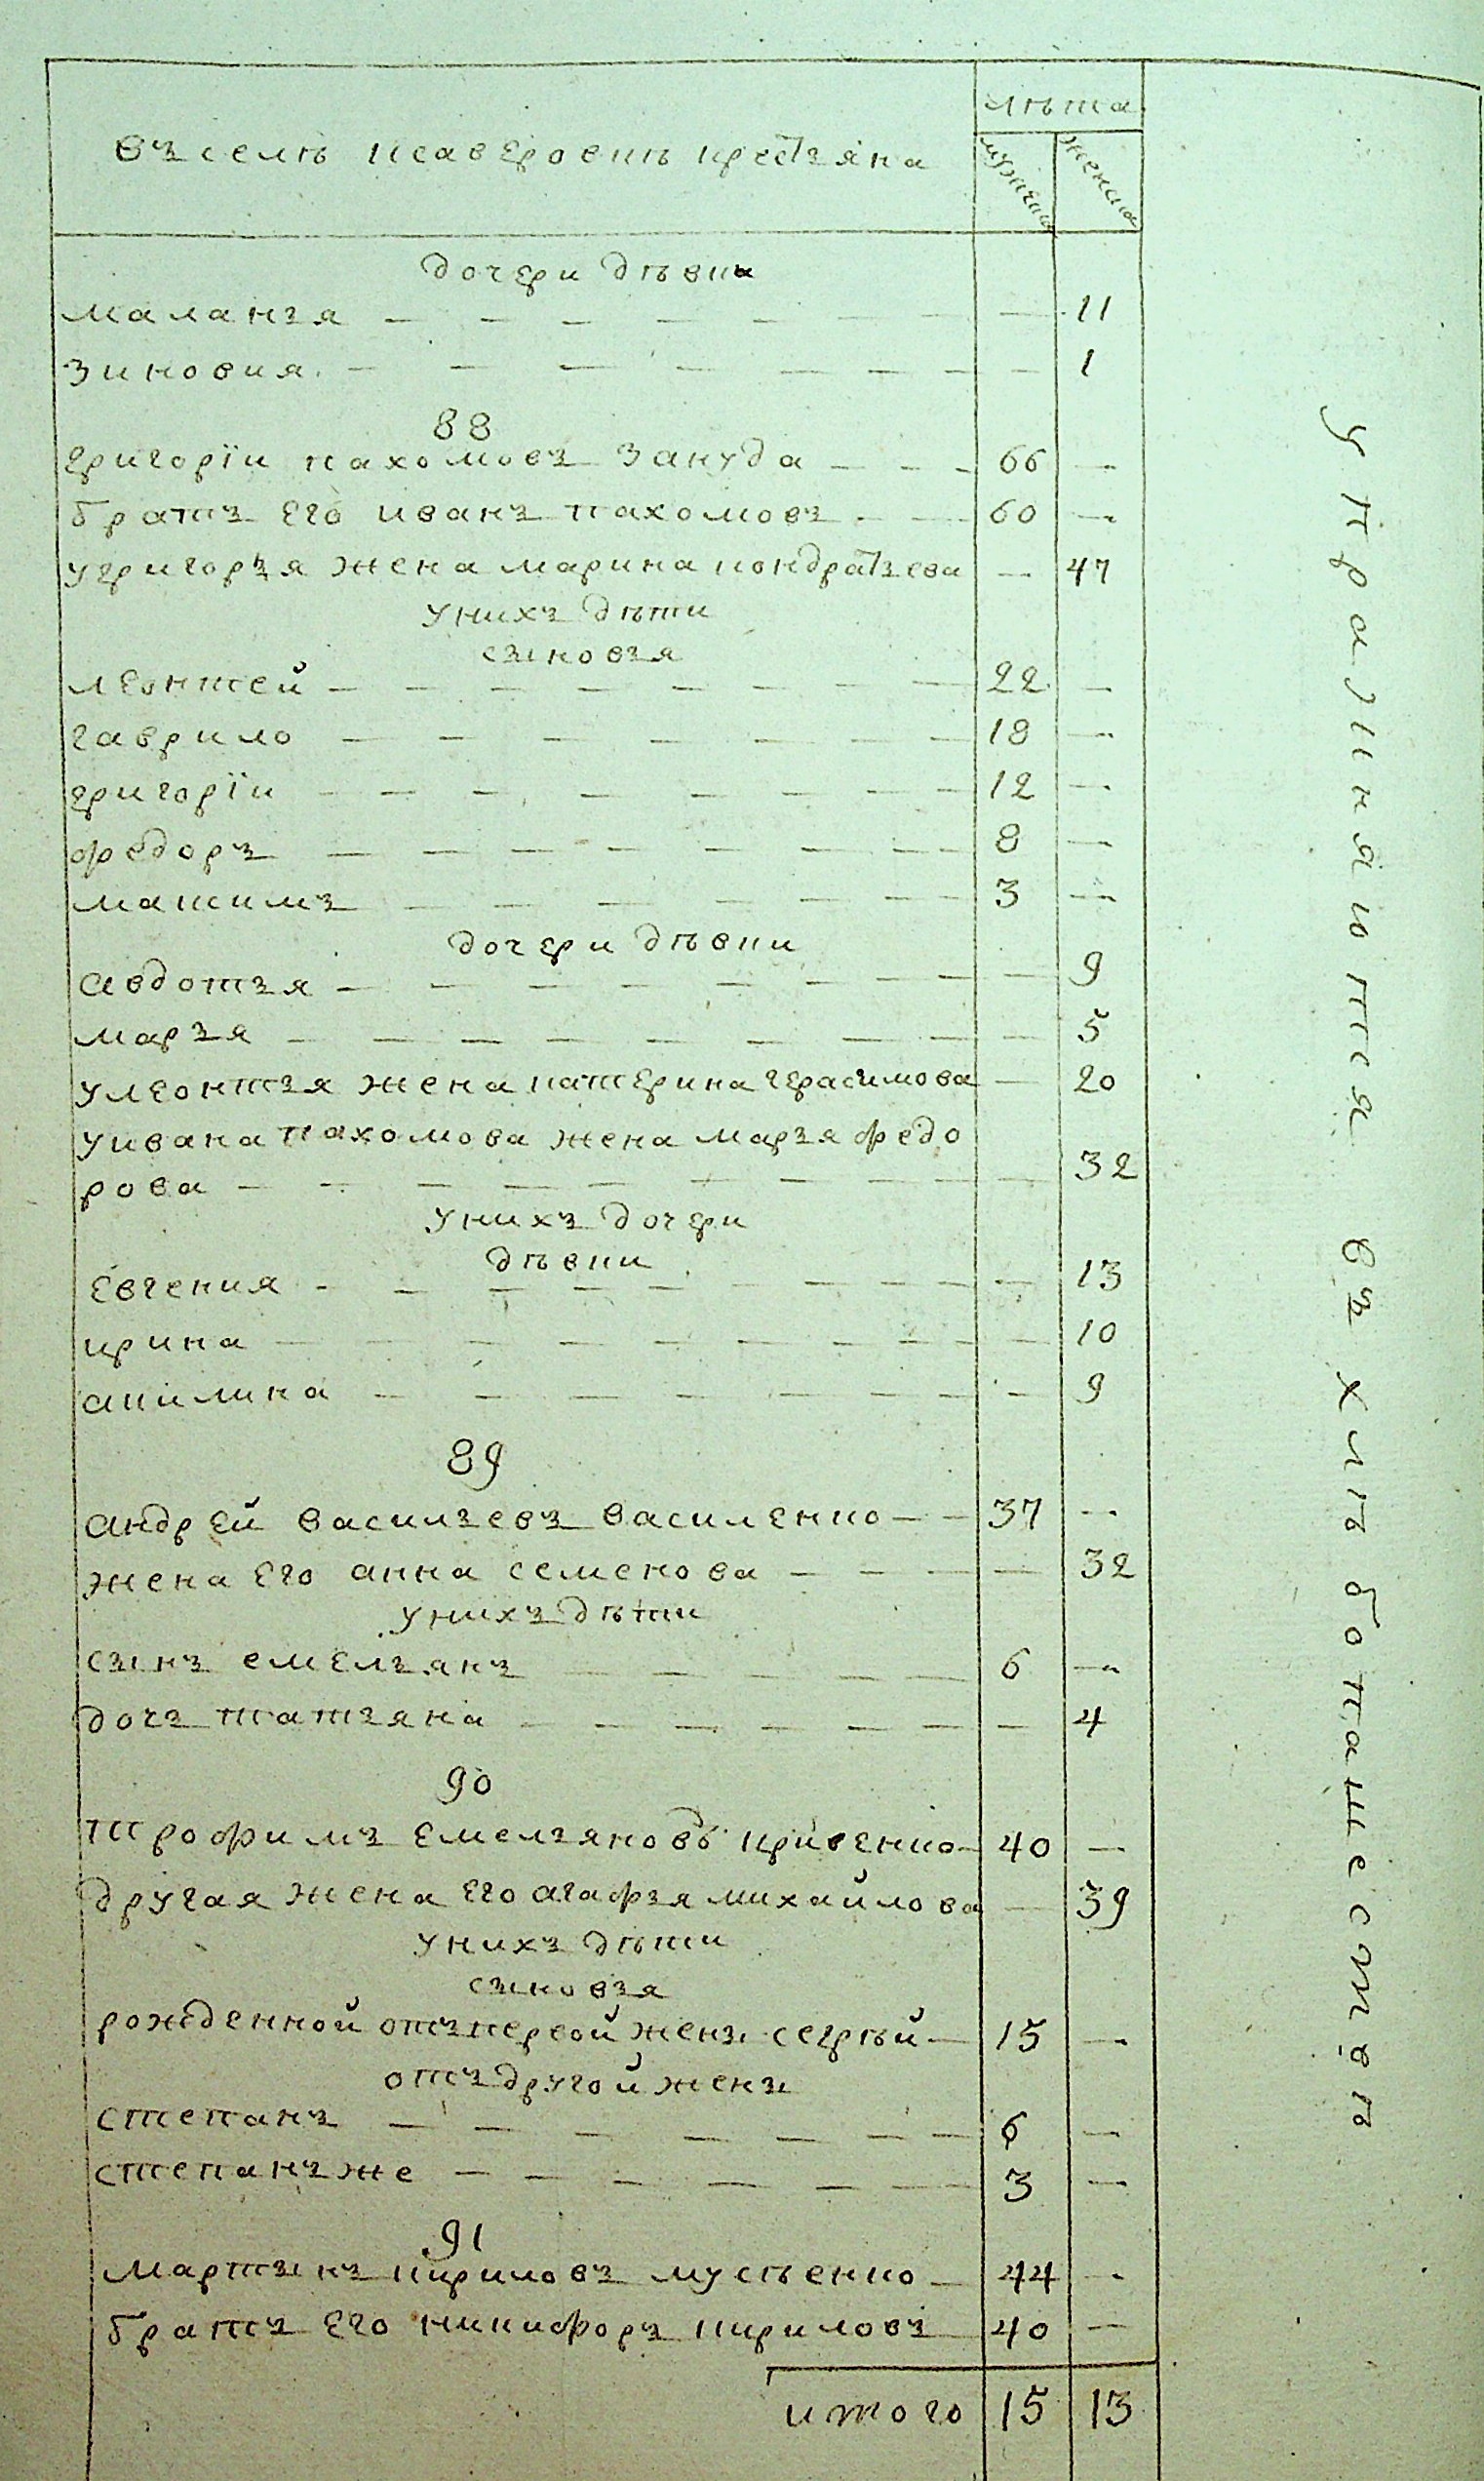 лѣта
въ селѣ кавероскѣ крестьяна
мужчины
женыны
дочери дѣвки
маланья — 11
зиновия — 1
88
григорїи пахомовъ зануда — 66 —
братъ его иванъ пахомовъ — 60 —
у григорья жена марина кондратьева — 47
у нихъ дѣти
сыновья
леонтей — 22 —
гаврило — 18 —
григорїи — 12 —
федоръ — 8 —
максимъ — 3 —
дочери дѣвки
авдотья — 9
марья — 5
у леонтья жена катерина герасимова — 20
у ивана пахомова жена марья федо
рова — 32
у нихъ дочери
дѣвки
евгения — 13
ирина — 10
акилина — 9
89
андрей васильевъ василенко — 37 —
жена его анна семенова — 32
у нихъ дѣти
сынъ емельянъ — 6 —
дочь татьяна — 4
90
трофимъ емельяновъ кривенко — 40 —
другая жена его агафья михайлова — 39
у нихъ дѣти
сыновья
рожденной отъ первой жены сергѣй — 15 —
отъ другой жены
степанъ — 6 —
степанъ же — 3 —
91
мартынъ кириловъ мусѣенко — 44 —
братъ его никифоръ кириловъ — 40 —
итого 15 13
упражняются въ хлѣбопашествѣ